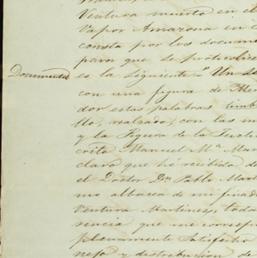 Ventura muerto en el
Vapor Amazona en
consta por los docume
para que se protocolize
Documento
es la siguiente = Un s
con una figura de
dor estas palabras
llo, realzado, con las
y la Figura de la
crito Manuel Mª Mar
claro que he recibido de
el Doctor Dn Pablo Mar
mo albacea de mi
Ventura Martinez, toda
rencia que me
plenamente satisfecho
nejo y distribucion de